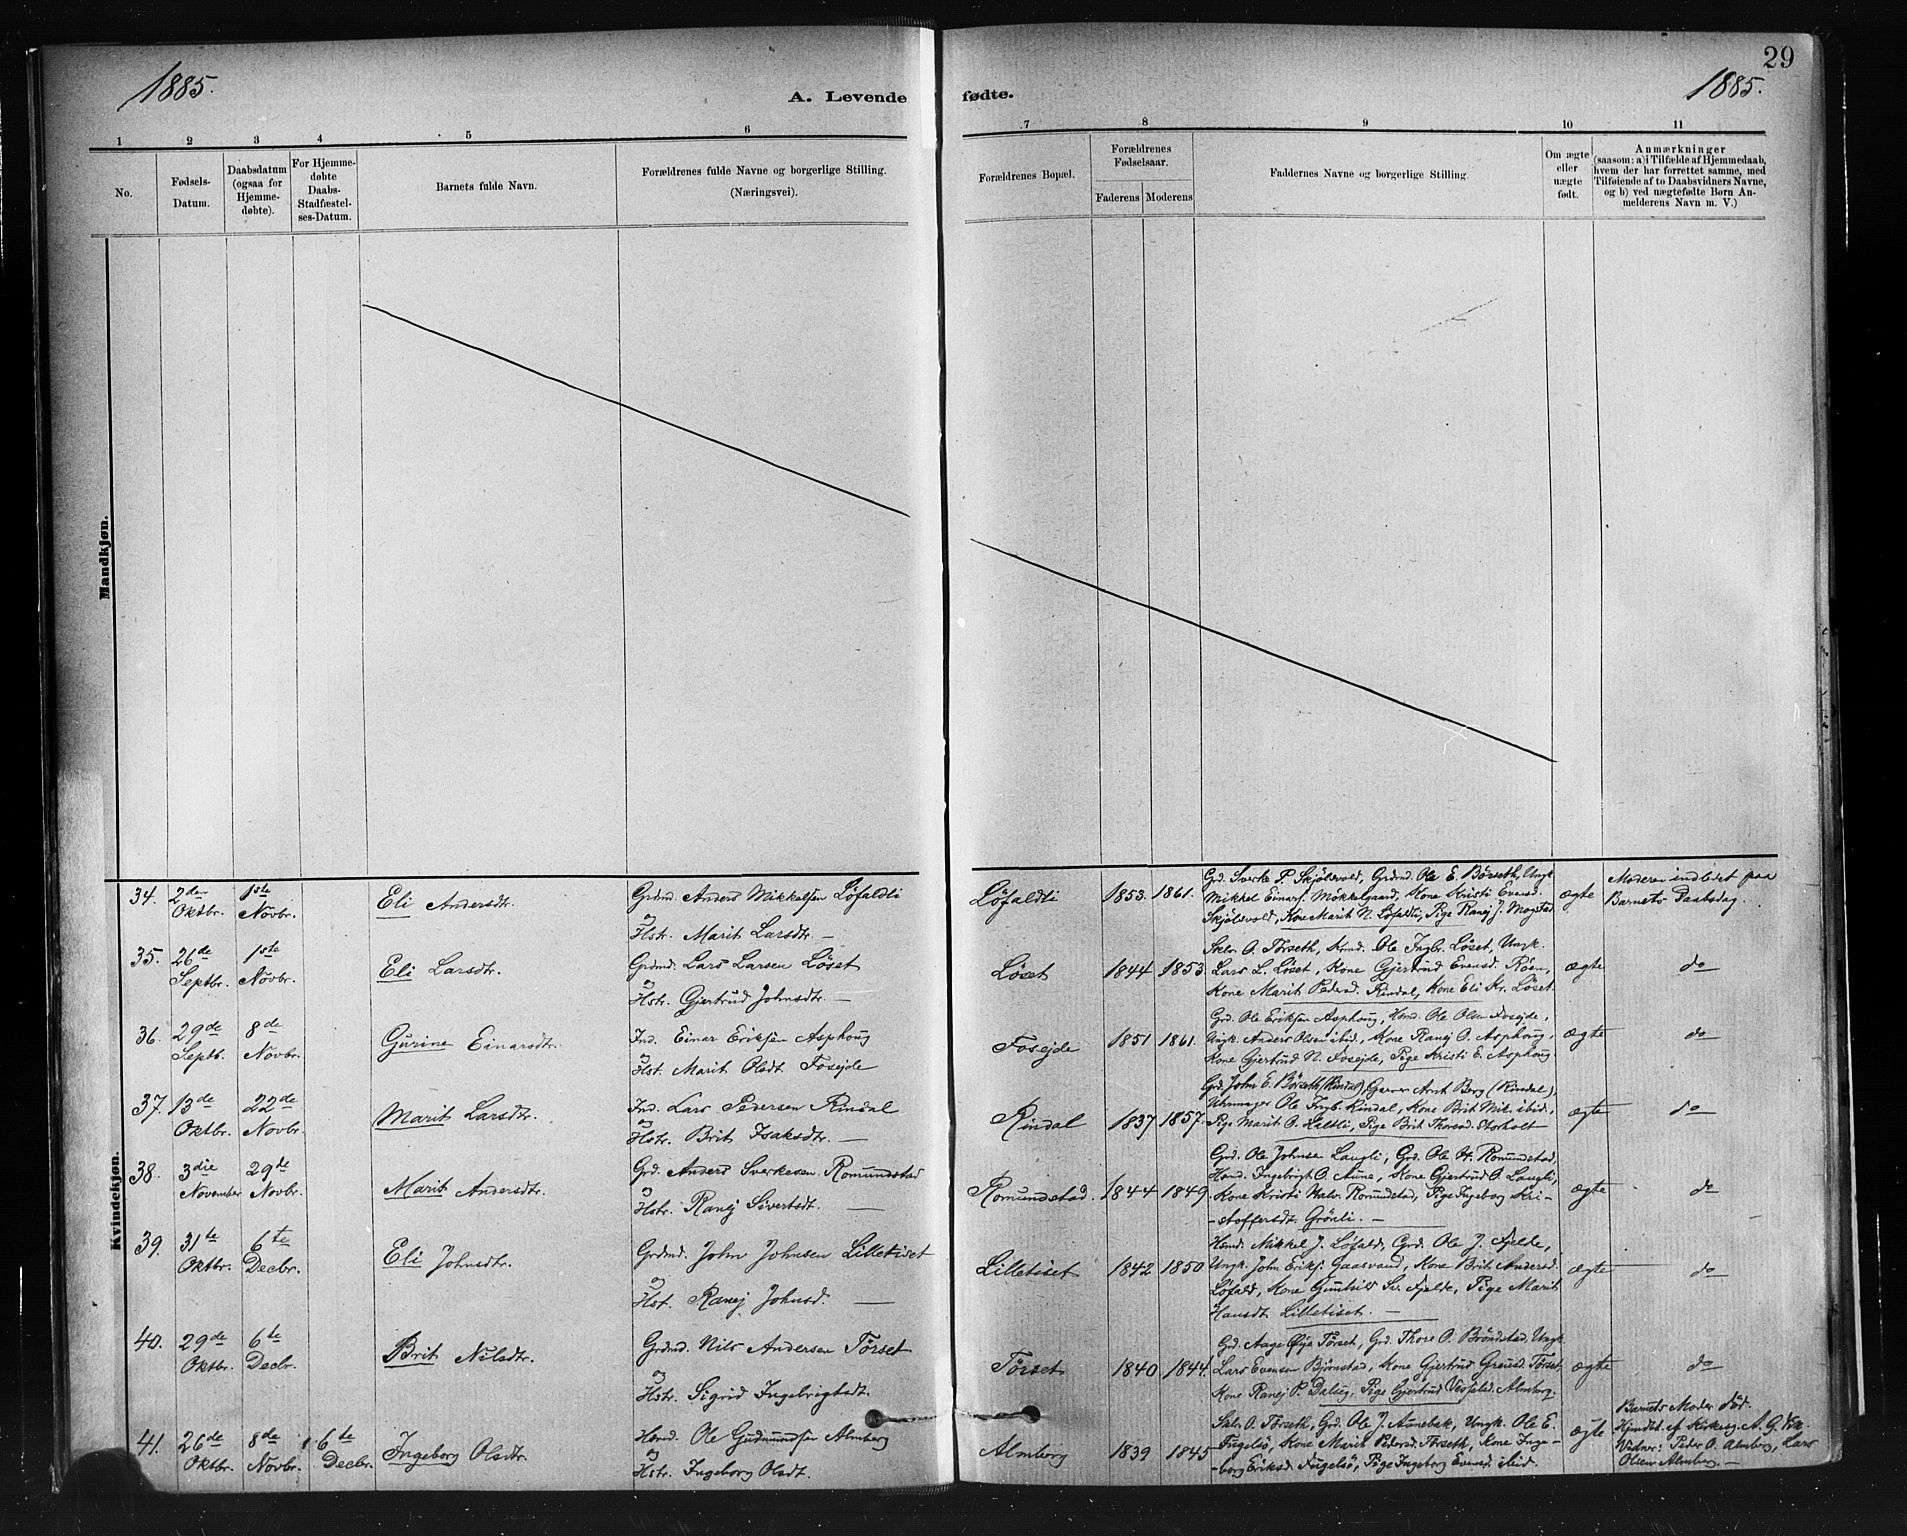 29
1885.
1885.
A. Levende fødte.
1 2 3 4 5 6 7 8 9 10 11
No.
Fødsels-
Datum.
Daabsdatum
(ogsaa for
Hjemme-
døbte).
For Hjemme-
døbte
Daabs-
Stadfæstel-
ses-Datum.
Barnets fulde Navn.
Forældrenes fulde Navne og borgerlige Stilling.
(Næringsvei).
Forældrenes Bopæl.
Forældrenes
Fødselsaar.
Faderens Moderens
Faddernes Navne og borgerlige Stilling.
Om ægte
eller
uægte
født.
Anmærkninger
(saasom: a) i Tilfælde af Hjemmedaab,
hvem der har forrettet samme, med
Tilføiende af to Daabsvidners Navne,
og b) ved uægtefødte Børn An-
melderens Navn m. V.)
Mandkjøn.
Kvindekjøn.
34. 2den Oktbr.
1ste Novbr.
Eli Andersdtr.
Grdmd. Anders Mikkelsen Löfaldli
og
Hstr. Marit Larsdtr. —
Löfaldli 1853. 1861.
Grd. Sverke P. Skjölsvold, Grdmd. Ole E. Börseth, Ungk.
Mikkel Einars. Mökkelgaard, Kone Kristi Evensd.
Skjölsvold, Kone Marit N. Löfaldli, Pige Ranej J. Mogstad
ægte
Moderen indledet paa
Barnets Daabsdag.
35. 26de Septbr.
1ste Novbr.
Eli Larsdtr.
Grdmd. Lars Larsen Löset
og
Hstr. Gjertrud Johnsdtr. —
Löset 1844 1853
O. Törseth, Ole Ingbr. Löset, Ungk.
Lars L. Löset, Kone Gjertrud Evensd. Röen,
Kone Marit Pedersd. Rindal, Kone Eli Kr. Löset.
ægte
do
36. 29de Septb.
8de Novbr.
Gurine Einarsdtr.
Ind. Einar Eriksen Asphoug
og
Hst. Marit Olsdt. Fosejde
Fosejde 1851 1861.
Grd. Ole Eriksen Asphoug, Hmd. Ole Olsen Fosejde,
Ungk. Anders Olsen ibid., Kone Ranej O. Asphoug,
Kone Gjertrud N. Fosejde, Pige Kristi E. Asphoug.
ægte
do
37. 13de Oktbr.
22de Novbr.
Marit Larsdtr.
Ind. Lars Pedersen Rindal
og
Hstr. Brit Isaksdtr. —
Rindal 1837 1857.
Grd. John E. Börseth (Rindal), Garver Arnt Berg (Rindal),
Uhrmager Ole Ingb. Rindal, Kone Brit Mik. ibid.,
Pige Marit O. Haltli, Pige Brit
ægte
do
38. 3die November
29de Novbr.
Marit Andersdtr.
Grd. Anders Sverkesen Romundstad
og
Hstr. Ranej Sivertsdt. —
Romundstad. 1844 1849
Grd. Ole Johnsen Langli, Grd. Ole H. Romundstad,
Hmd. Ingebrigt O. Aune, Kone Gjertrud O. Langli,
Kone Kristi Halv. Romundstad, Pige Ingeborg Kri-
-stoffersdt. Grönli. —
ægte
do
39. 31te Oktbr.
6te Decbr.
Eli Johnsdtr.
Grdmd. John Johnsen Lilletiset
og
Hst. Ranej Johnsd. —
Lilletiset 1842 1850
Hmd. Mikkel J. Löfald, Grd. Ole J. Fjelde,
Ungk. John Eriks. Gaasvand, Kone Brit Andersd.
Löfald, Kone Gunhild Sv. Fjelde, Pige Marit
Hansdt. Lilletiset. —
ægte
do
40. 29de Oktbr.
6te Decbr.
Brit Nilsdtr.
Grdmd. Nils Andersen Törset
og
Hstr. Sigrid Ingebrigtsdt.
Törset 1840 1844.
Grd. Aage Öye Törset, Grd. Thore O. Bröndstad, Ungk.
Lars Evensen Björnstad, Kone Gjertrud Törset,
Kone Ranej P. Dalseg, Pige Gjertrud Almberg.
ægte
do
41. 26de Oktbr.
8de Novbr.
6te Decbr.
Ingeborg Olsdtr.
Hmd. Ole Gudmundsen Almberg
og
Hstr. Ingeborg Olsdt.
Almberg 1839 1845
O. Törseth, Grd. Ole J. Aunebak, Ungk. Ole E.
Fugelsö, Kone Marit Pedersd. Törseth, Kone Inge-
-borg Eriksd. Fugelsö, Pige Ingeborg Evensd. ibid.
ægte
Barnets Moder död.
Hjmdbt. af Kirkesg. A. G.
Vidner: Peder O. Almberg, Lars
Olsen Almberg. —